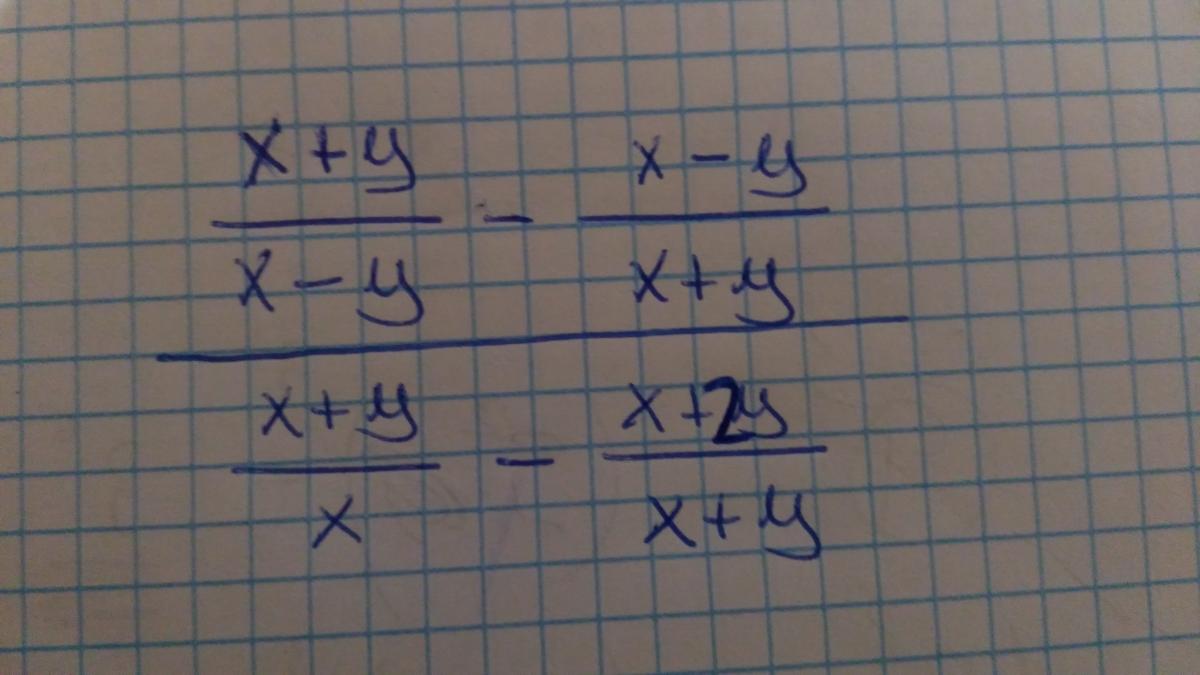 x+y - x-y
x-y x+y
x+y - x+2y
x x+y